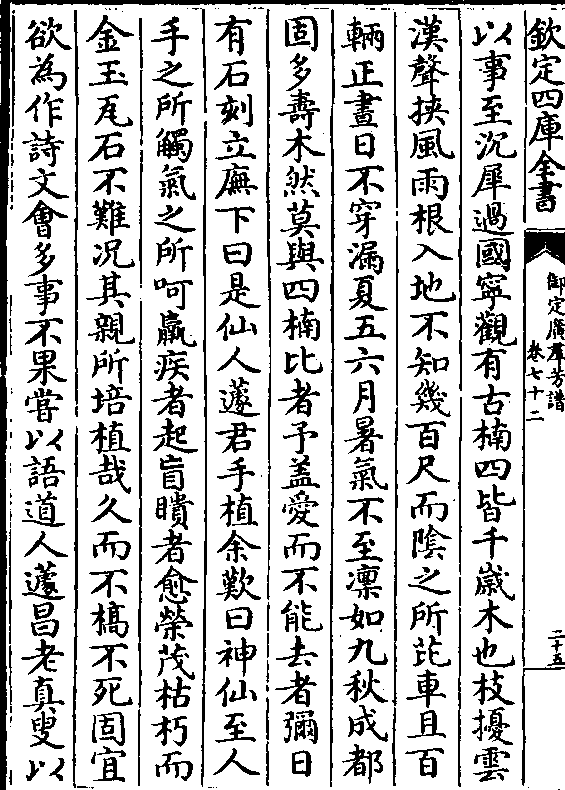 欽定四庫全書
御定廣羣芳譜
卷七十二
二十五
以事至沉犀過國寧觀有古楠四皆千歲木也枝擾雲
漢聲挟風雨根入地不知幾百尺而陰之所芘車且百
輛正晝日不穿漏夏五六月暑氣不至凛如九秋成都
固多壽木然莫與四楠比者予盖愛而不能去者彌日
有石刻立廡下曰是仙人蘧君手植余歎曰神仙至人
手之所觸氣之所呵羸疾者起盲聵者愈榮茂枯朽而
金玉瓦石不難况其親所培植哉久而不槁不死固宜
欲為作詩文會多事不果嘗以語道人蘧昌老真叟以